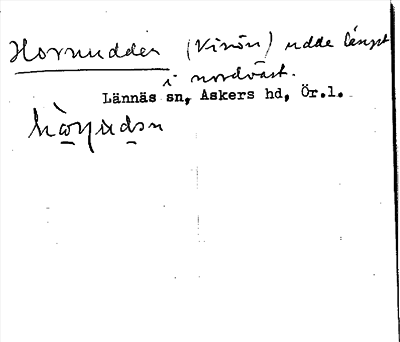 Hornudden (Vinön) udde längst
i nordväst.
Lännäs sn, Askers hd, Ör.l.